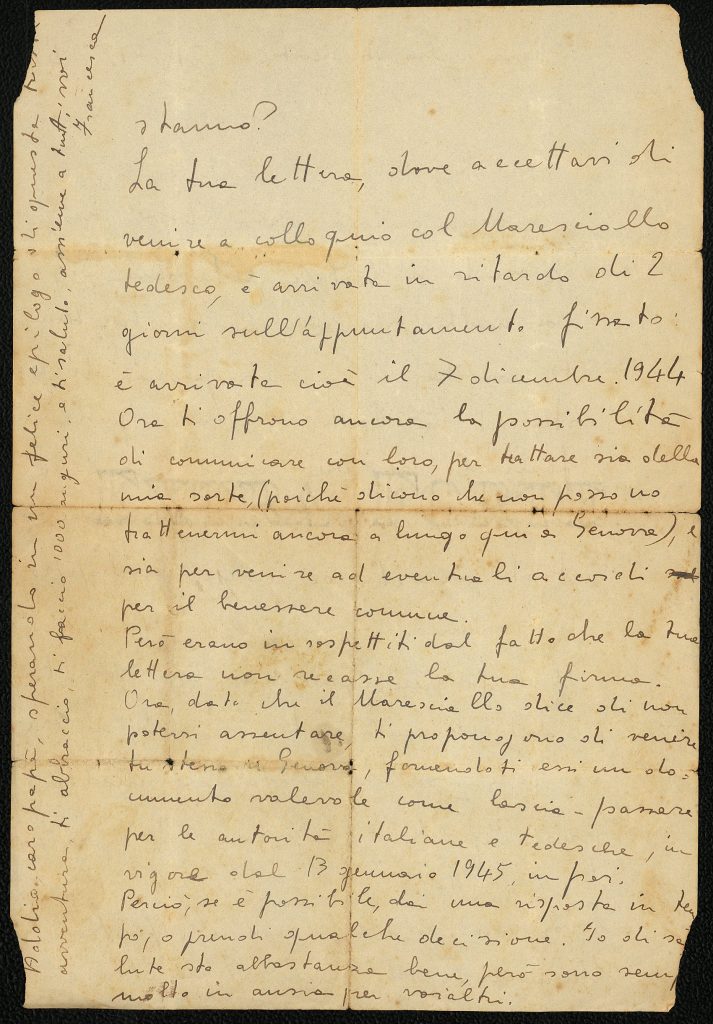 stanno?
La tua lettera, dove accettavi di
venire a colloquio col Maresciallo
tedesco, è arrivata in ritardo di 2
giorni sull'appuntamento fissato:
è arrivata cioè il 7 dicembre 1944
Ora ti offrono ancora la possibilità
di comunicare con loro, per trattare sia della
mia sorte, (poichè dicono che non possono
trattenermi ancora a lungo qui a Genova), e
sia per venire ad eventuali accordi
per il benessere comune.
Però erano insospettiti dal fatto che la tua
lettera non recasse la tua firma.
Ora, dato che il Maresciallo dice di non
potersi assentare, ti propongono di venire
tu stesso a Genova, fornendoti essi un do-
cumento valevole come lascia-passare
per le autorità italiane e tedesche, in
vigore dal 13 gennaio 1945, in poi.
Perciò, se è possibile, dai una risposta in tem
po, o prendi qualche decisione. Io di sa
lute sto abbastanza bene, però sono semp
molto in ansia per voialtri.
Addio, caro papà, sperando in un felice epilogo di questa
avventura, ti abbraccio, ti faccio 1000 auguri, e ti saluto, assieme a tutti voi
Francesca